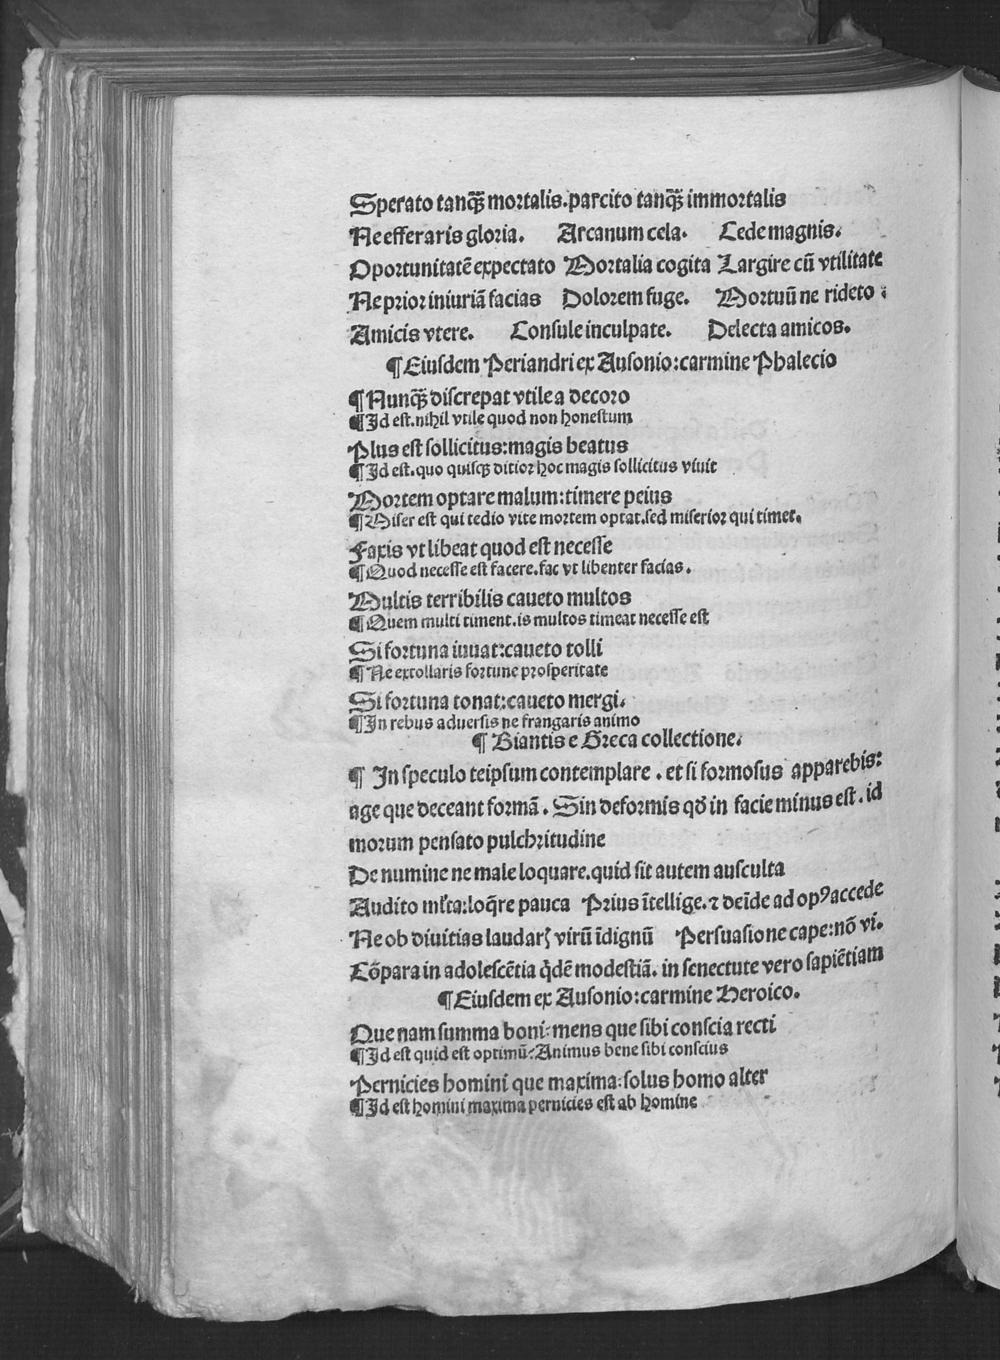 Sperato tanqꝫ mortalis. parcito tanqꝫ immortalis
Ne efferaris gloria. Arcanum cela. Cede magnis.
Oportunitatē expectato Mortalia cogita Largire cū vtilitate
Ne prior iniuriā facias Dolorem fuge. Mortuū ne rideto :
Amicis vtere. Consule inculpate. Delecta amicos.
¶ Eiusdem Periandri ex Ausonio: carmine Phalecio
¶ Nunqꝫ discrepat vtile a decoro
¶ Id est. nihil vtile quod non honestum
Plus est sollicitus: magis beatus
¶ Id est. quo quisqꝫ ditior hoc magis sollicitus viuit
Mortem optare malum: timere peius
¶ Miser est qui tedio vite mortem optat. sed miserior qui timet.
Faxis vt libeat quod est necesse
¶ Quod necesse est facere. fac vt libenter facias.
Multis terribilis caueto multos
¶ Quem multi timent. is multos timeat necesse est
Si fortuna iuuat: caueto tolli
¶ Ne extollaris fortune prosperitate
Si fortuna tonat: caueto mergi.
¶ In rebus aduersis ne frangaris animo
¶ Biantis e Greca collectione.
¶ In speculo teipsum contemplare. et si formosus apparebis:
age que deceant formā. Sin deformis qđ in facie minus est. id
morum pensato pulchritudine
De numine ne male loquare. quid sit autem ausculta
Audito ml'ta: loq̄re pauca Prius ītellige. ⁊ deīde ad opꝰ accede
Ne ob diuitias laudarꝭ virū īdignū Persuasione cape: nō vi.
Cōpara in adolescētia q̄dē modestiā. in senectute vero sapiētiam
¶ Eiusdem ex Ausonio: carmine Heroico.
Que nam summa boni: mens que sibi conscia recti
¶ Id est quid est optimū: Animus bene sibi conscius
Pernicies homini que maxima: solus homo alter
¶ Id est homini maxima pernicies est ab homine